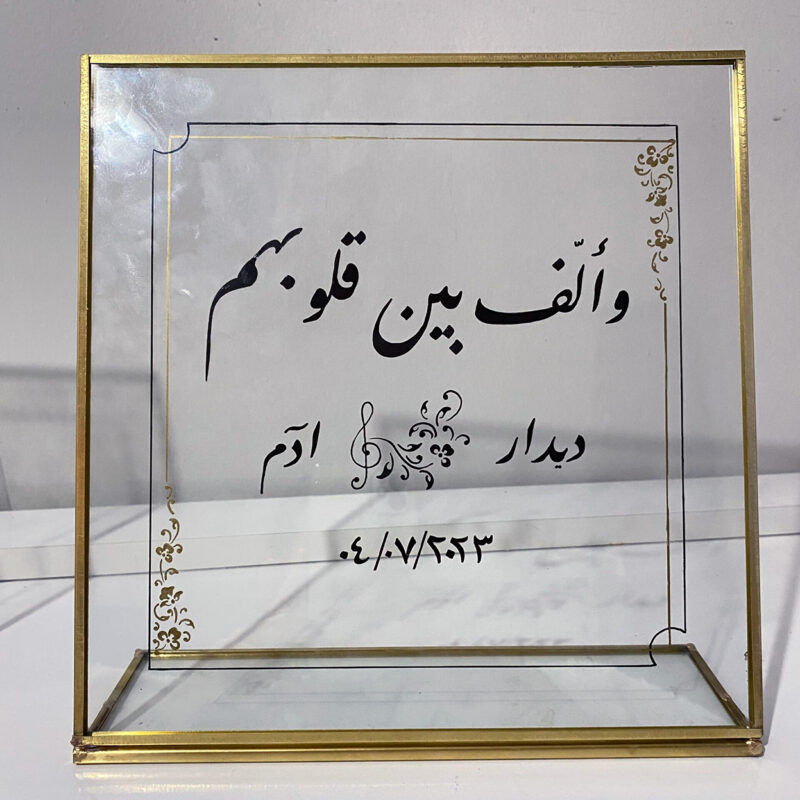 وألّف بين قلوبهم
ديدار ادَم
٠٤/٠٧/٢٠٢٣